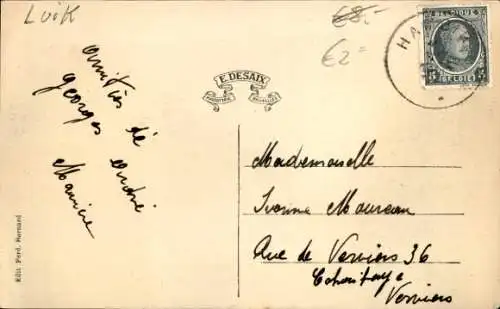 Luik
€8,-
€2=
HA
BELGIQUE
5 5
BELGIË
E. DESAIX
amitiés de
Georges André
Maurice
Mademoiselle
Ivonne Moureau
Rue de Verviers 36
Verviers
Edit. Ferd. Bernard